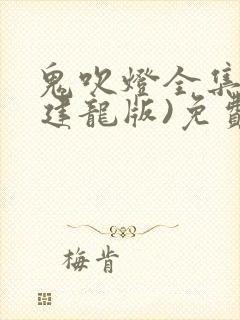 鬼吹燈全集
建龍版)免費
梅肯